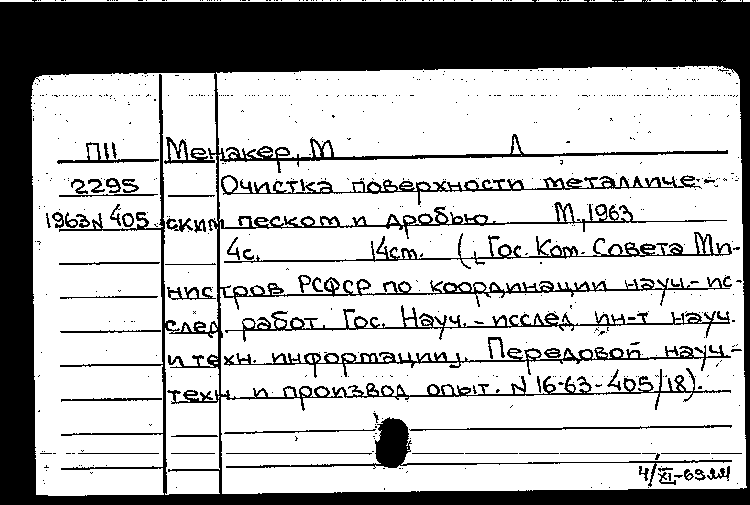 ПII Менакер, М Л
2295 Очистка поверхности металличе-
1963 N 405 ским песком и дробью. М., 1963
4с. 14ст. ([Гос. Ком. Совета Ми-
нистров РСФСР по координации науч.-ис-
след. работ. Гос. Науч.-исслед. ин-т науч.
и техн. информации]. Передовой науч.-
техн. и производ. опыт. N 16-63-405/18).
4/XI-63